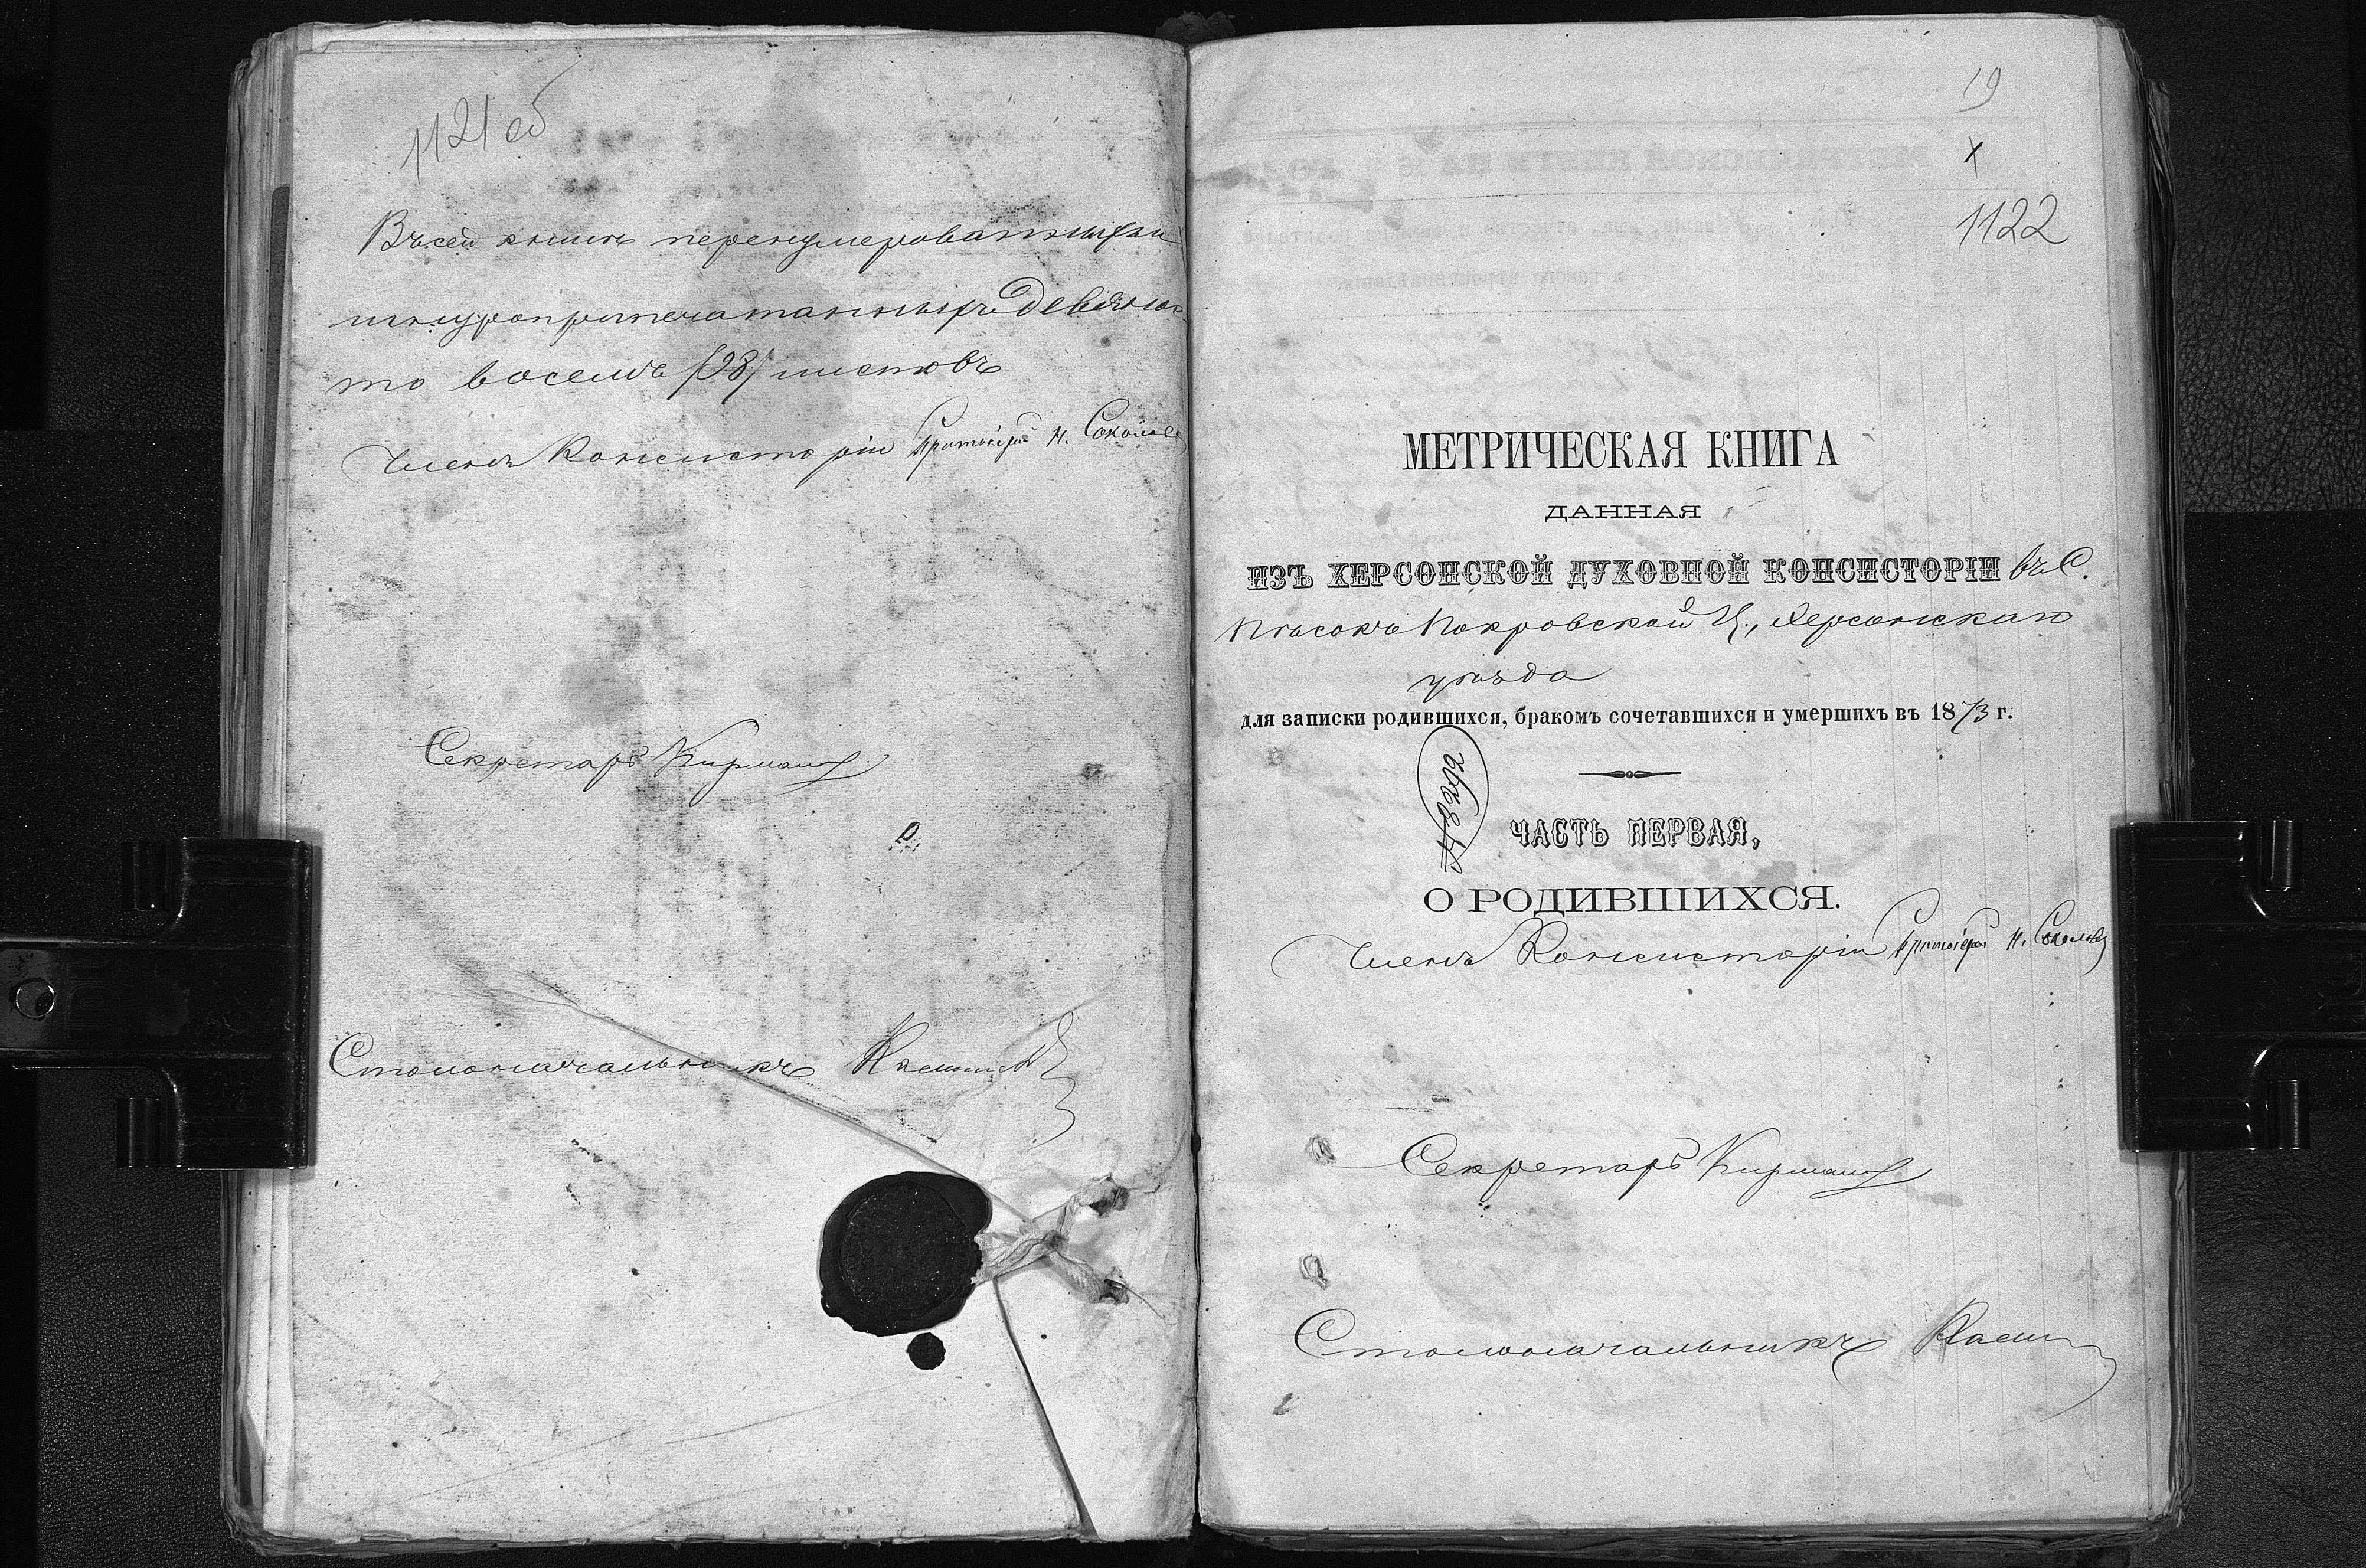 1121 об
Въ сей книгѣ перенумерованныхъ и
шнуроприпечатанныхъ девяно-
то восемь /98/ листовъ
Членъ Консисторіи Протоіерей Н. Соколовъ
Секретарь
Столоначальникъ
19
х
1122
МЕТРИЧЕСКАЯ КНИГА
ДАННАЯ
ИЗЪ ХЕРСОНСКОЙ ДУХОВНОЙ КОНСИСТОРІИ въ С.
Покровской Ц., Херсонскаго
уѣзда
для записки родившихся, бракомъ сочетавшихся и умершихъ въ 1873 г.
ЧАСТЬ ПЕРВАЯ,
О РОДИВШИХСЯ.
Членъ Консисторіи Протоіерей Н. Соколовъ
Секретарь
Столоначальникъ